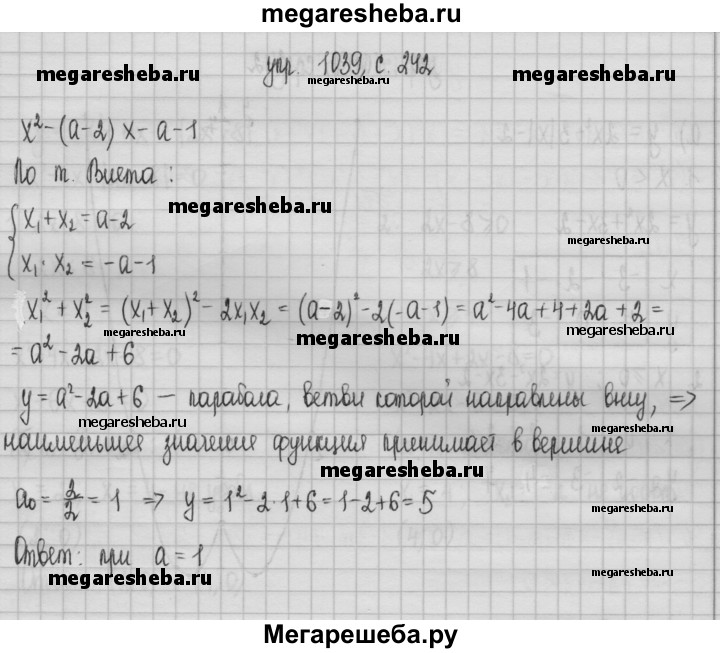 megaresheba.ru
упр. 1039, с. 242
megaresheba.ru megaresheba.ru megaresheba.ru
x² - (a-2) x - a - 1
По т. Виета:
megaresheba.ru
{ x₁ + x₂ = a-2
x₁ · x₂ = -a-1
megaresheba.ru
x₁² + x₂² = (x₁+x₂)² - 2x₁x₂ = (a-2)² - 2(-a-1) = a² - 4a + 4 + 2a + 2 =
megaresheba.ru megaresheba.ru megaresheba.ru
= a² - 2a + 6
y = a² - 2a + 6 — парабола, ветви которой направлены вниз, =>
megaresheba.ru megaresheba.ru
наименьшее значение функция принимает в вершине
megaresheba.ru
a₀ = 2/2 = 1 => y = 1² - 2·1 + 6 = 1 - 2 + 6 = 5
megaresheba.ru
Ответ: при a = 1
megaresheba.ru megaresheba.ru
Мегарешеба.ру